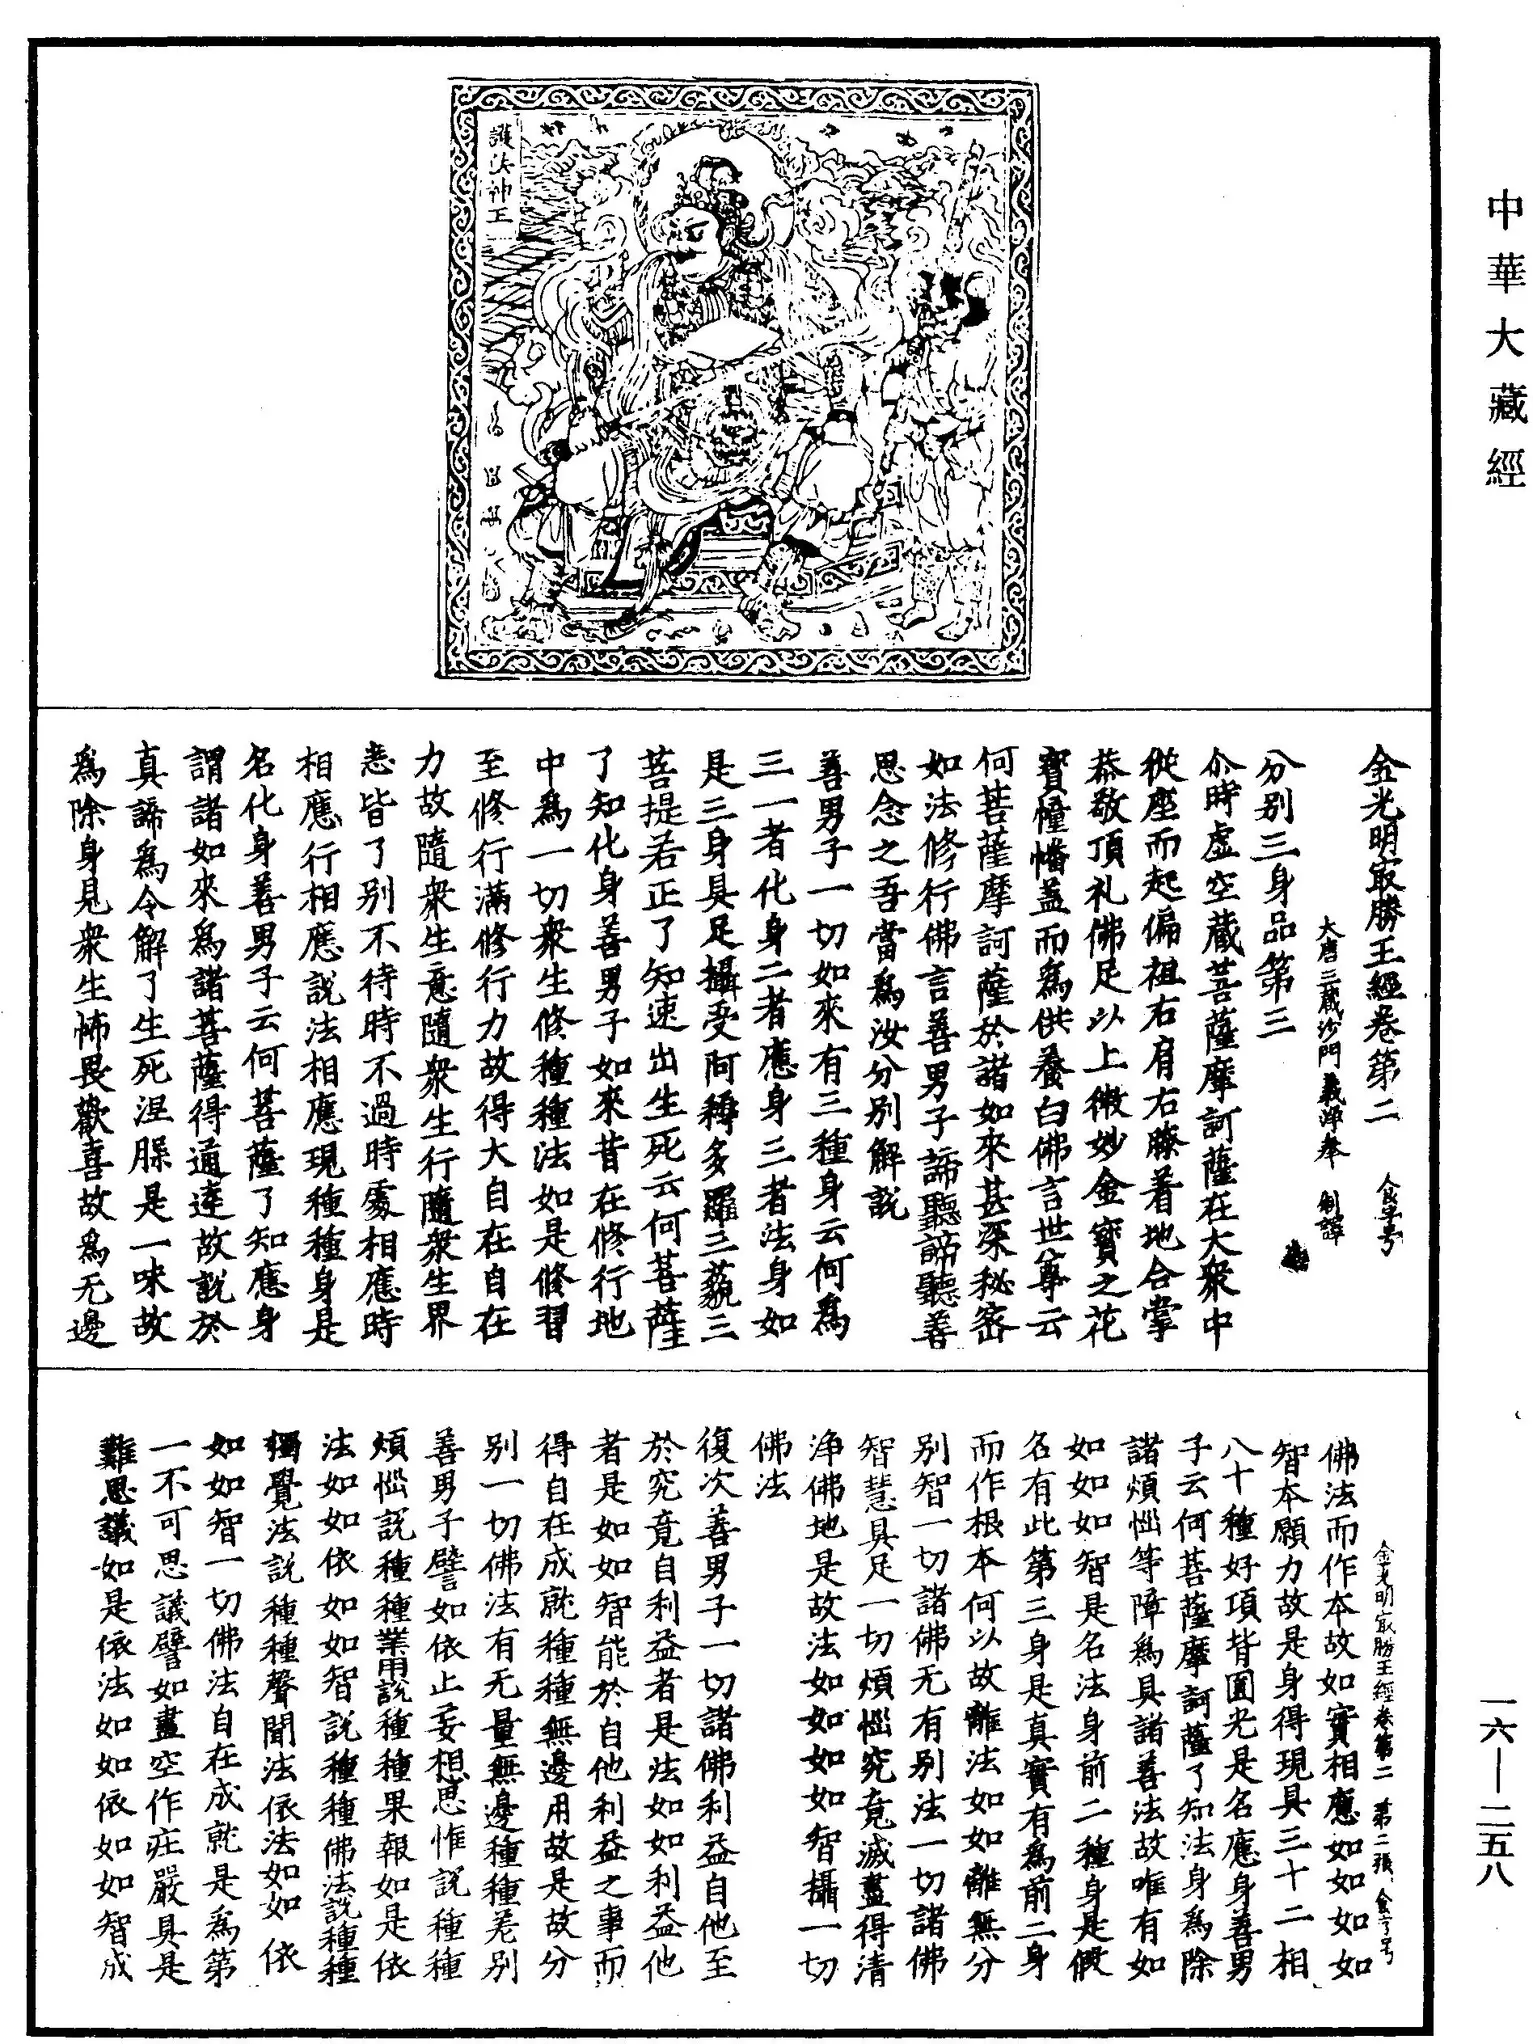 中華大藏經
護法神王
金光明㝡勝王經卷第二 食字号
大唐三藏沙門義淨奉 制譯
分別三身品第三
尒時虛空藏菩薩摩訶薩在大衆中
從座而起偏袒右肩右膝著地合掌
恭敬頂礼佛足以上微妙金寶之花
寶幢幡盖而爲供養白佛言世尊云
何菩薩摩訶薩於諸如來甚深秘密
如法修行佛言善男子諦聽諦聽善
思念之吾當爲汝分別解說
善男子一切如來有三種身云何爲
三一者化身二者應身三者法身如
是三身具足攝受阿耨多羅三藐三
菩提若正了知速出生死云何菩薩
了知化身善男子如來昔在修行地
中爲一切衆生修種種法如是修習
至修行滿修行力故得大自在自在
力故隨衆生意隨衆生行隨衆生界
悉皆了別不待時不過時處相應時
相應行相應說法相應現種種身是
名化身善男子云何菩薩了知應身
謂諸如來爲諸菩薩得通達故說於
真諦爲令解了生死涅槃是一味故
爲除身見衆生怖畏歡喜故爲无邊
金光明㝡勝王經卷第二 第二張 食字号
佛法而作本故如實相應如如如如
智本願力故是身得現具三十二相
八十種好項背圓光是名應身善男
子云何菩薩摩訶薩了知法身爲除
諸煩惱等障爲具諸善法故唯有如
如如如智是名法身前二種身是假
名有此第三身是真實有爲前二身
而作根本何以故離法如如離無分
別智一切諸佛无有別法一切諸佛
智慧具足一切煩惱究竟滅盡得清
淨佛地是故法如如如如智攝一切
佛法
復次善男子一切諸佛利益自他至
於究竟自利益者是法如如利益他
者是如如智能於自他利益之事而
得自在成就種種無邊用故是故分
別一切佛法有无量無邊種種差別
善男子譬如依止妄想思惟說種種
煩惱說種種業用說種種果報如是依
法如如依如如智說種種佛法說種種
獨覺法說種種聲聞法依法如如依
如如智一切佛法自在成就是爲第
一不可思議譬如畫空作莊嚴具是
難思議如是依法如如依如如智成
一六—二五八